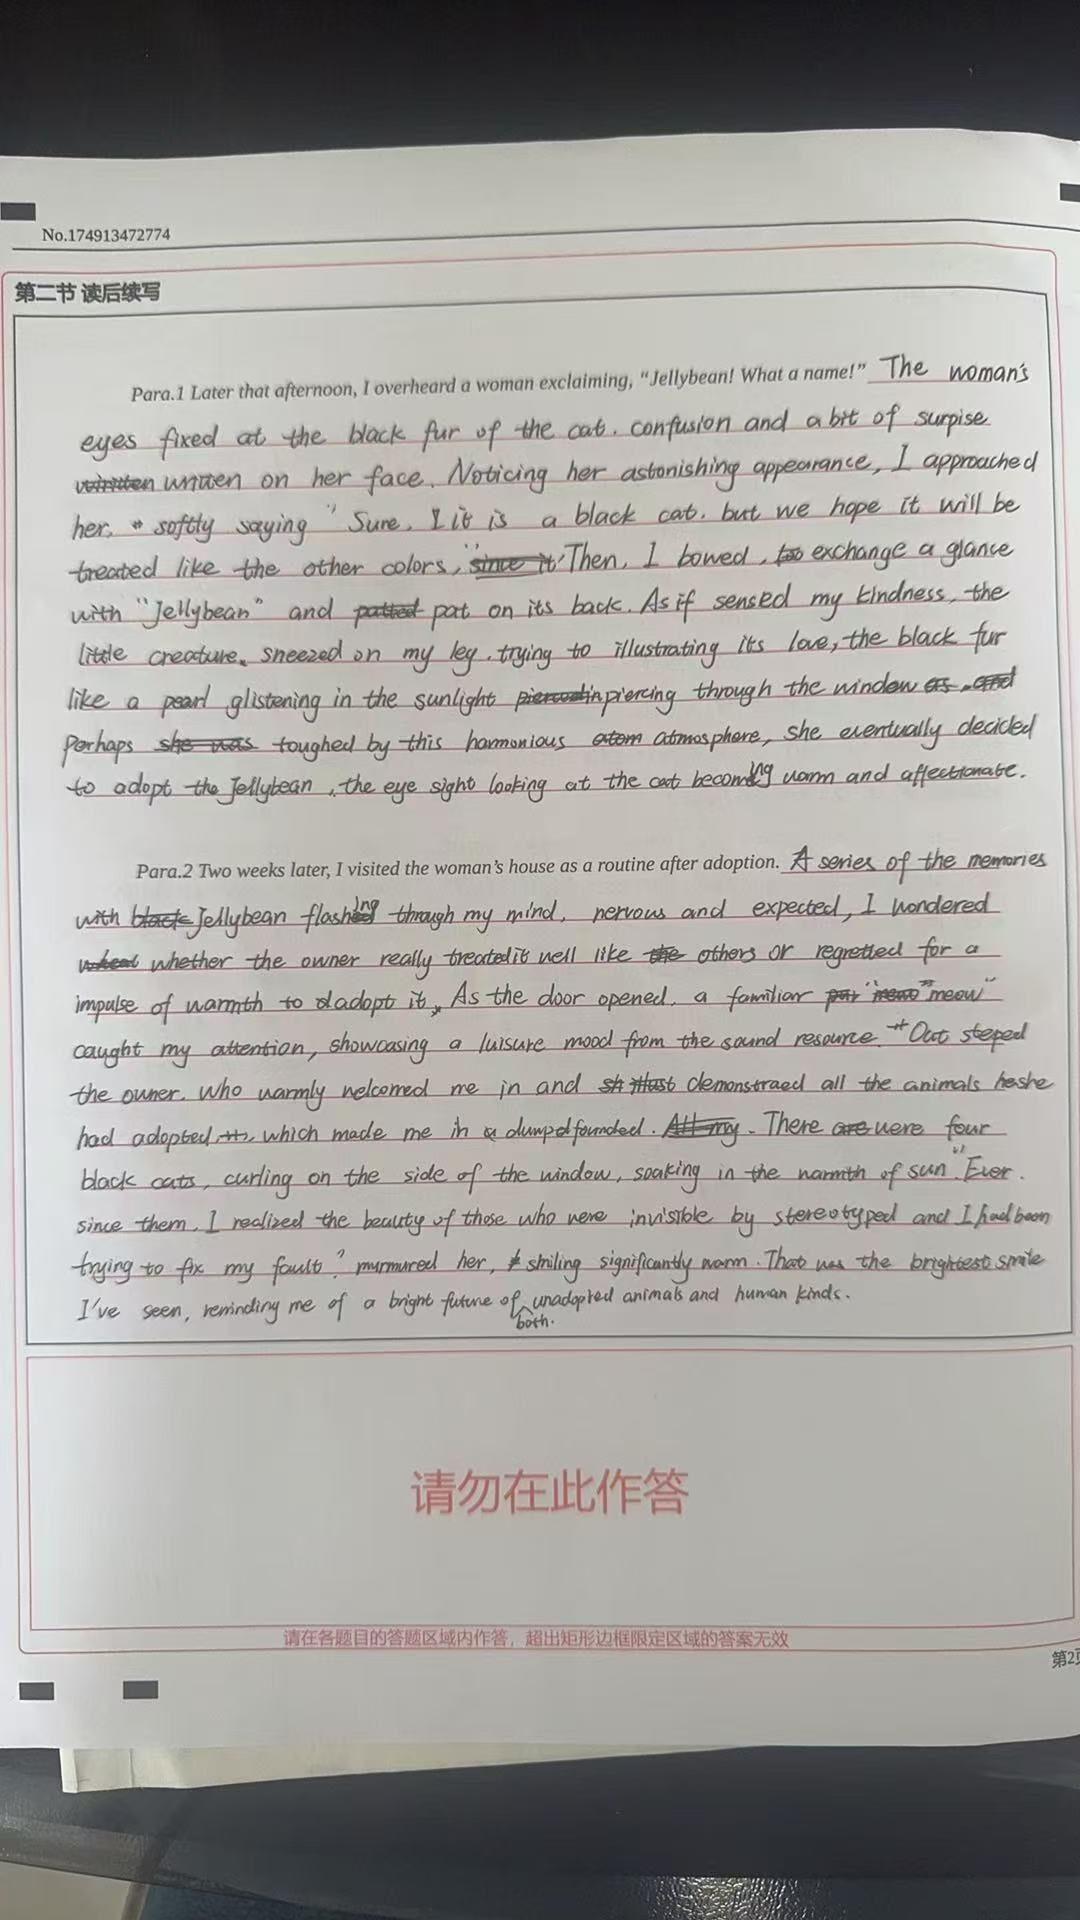 No.174913472774
第二节 读后续写
Para.1 Later that afternoon, I overheard a woman exclaiming, “Jellybean! What a name!” The woman's
eyes fixed at the black fur of the cat. confusion and a bit of surpise
written on her face. Noticing her astonishing appearance, I approached
her, softly saying "Sure, it is a black cat. but we hope it will be
treated like the other colors." Then, I bowed, exchange a glance
with "Jellybean" and pat on its back. As if sensed my kindness, the
little creature sneezed on my leg, trying to illustrating its love, the black fur
like a pearl glistening in the sunlight piercing through the window
Perhaps toughed by this harmonious atmosphere, she eventually decided
to adopt the Jellybean, the eye sight looking at the cat becoming warm and affectionate.
Para.2 Two weeks later, I visited the woman’s house as a routine after adoption. A series of the memories
with Jellybean flashing through my mind, nervous and expected, I wondered
whether the owner really treated it well like others or regretted for a
impulse of warmth to adopt it. As the door opened, a familiar "meow"
caught my attention, showcasing a luisure mood from the sound resource. Out steped
the owner. who warmly welcomed me in and demonstraed all the animals he she
had adopted, which made me in dumpdfounded. There were four
black cats, curling on the side of the window, soaking in the warmth of sun. "Ever
since them, I realized the beauty of those who were invisible by stereotyped and I had been
trying to fix my fault" murmured her, smiling significantly warm. That was the brightest smile
I've seen, reminding me of a bright future of both unadopted animals and human kinds.
请勿在此作答
请在各题目的答题区域内作答，超出矩形边框限定区域的答案无效
第2页